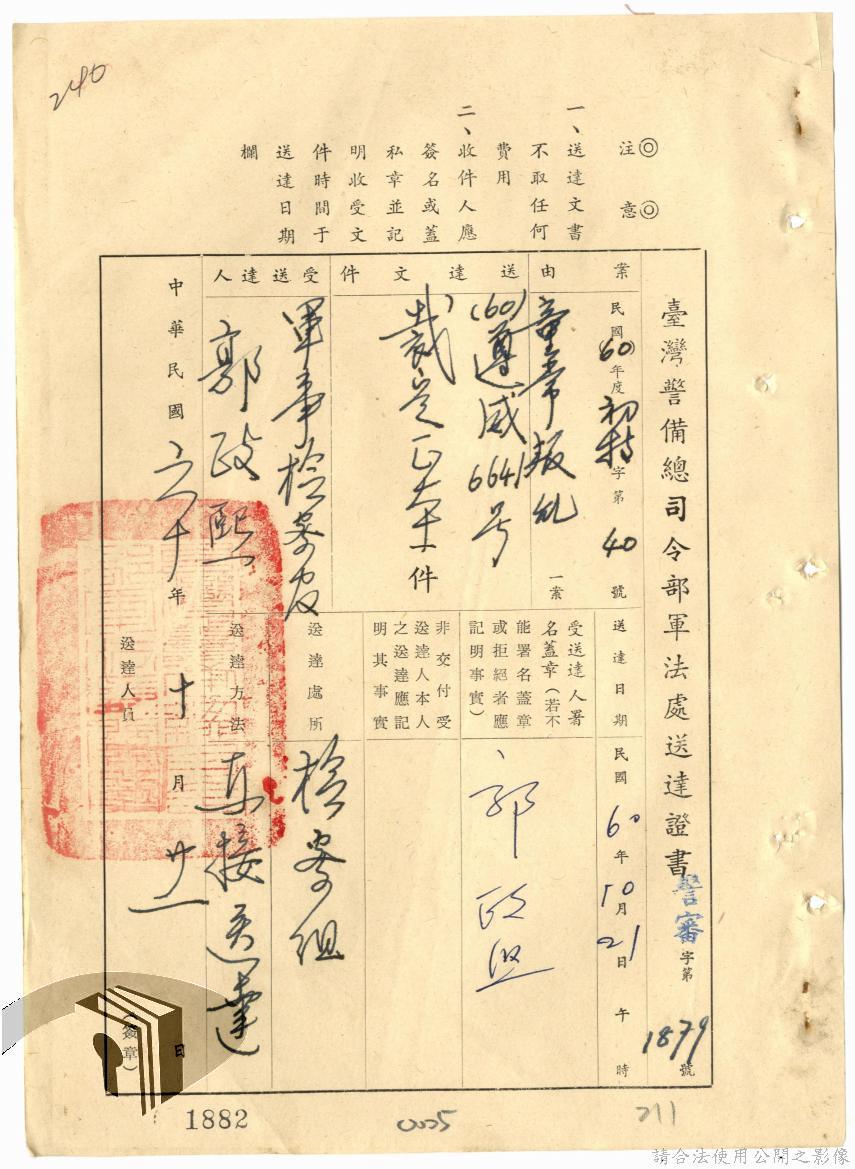 240
◎注意◎
一、送達文書
不取任何
費用
二、收件人應
簽名或蓋
私章並記
明收受文
件時間于
送達日期
欄
臺灣警備總司令部軍法處送達證書警審字第1879號
案由
民國(60)年度初特字第40號
叛亂一案
送達文件
(60)遵威6641号
裁定正本一件
受送達人
軍事檢察官
郭政熙
送達日期
民國60年10月21日午時
受送達人署
名蓋章(若不
能署名蓋章
或拒絕者應
記明事實)
郭政熙
非交付受
送達人本人
之送達應記
明其事實
送達處所
檢察組
送達方法
直接送達
中華民國六十年十月廿一日
送達人員
(簽章)
1882
0025
211
請合法使用公開之影像